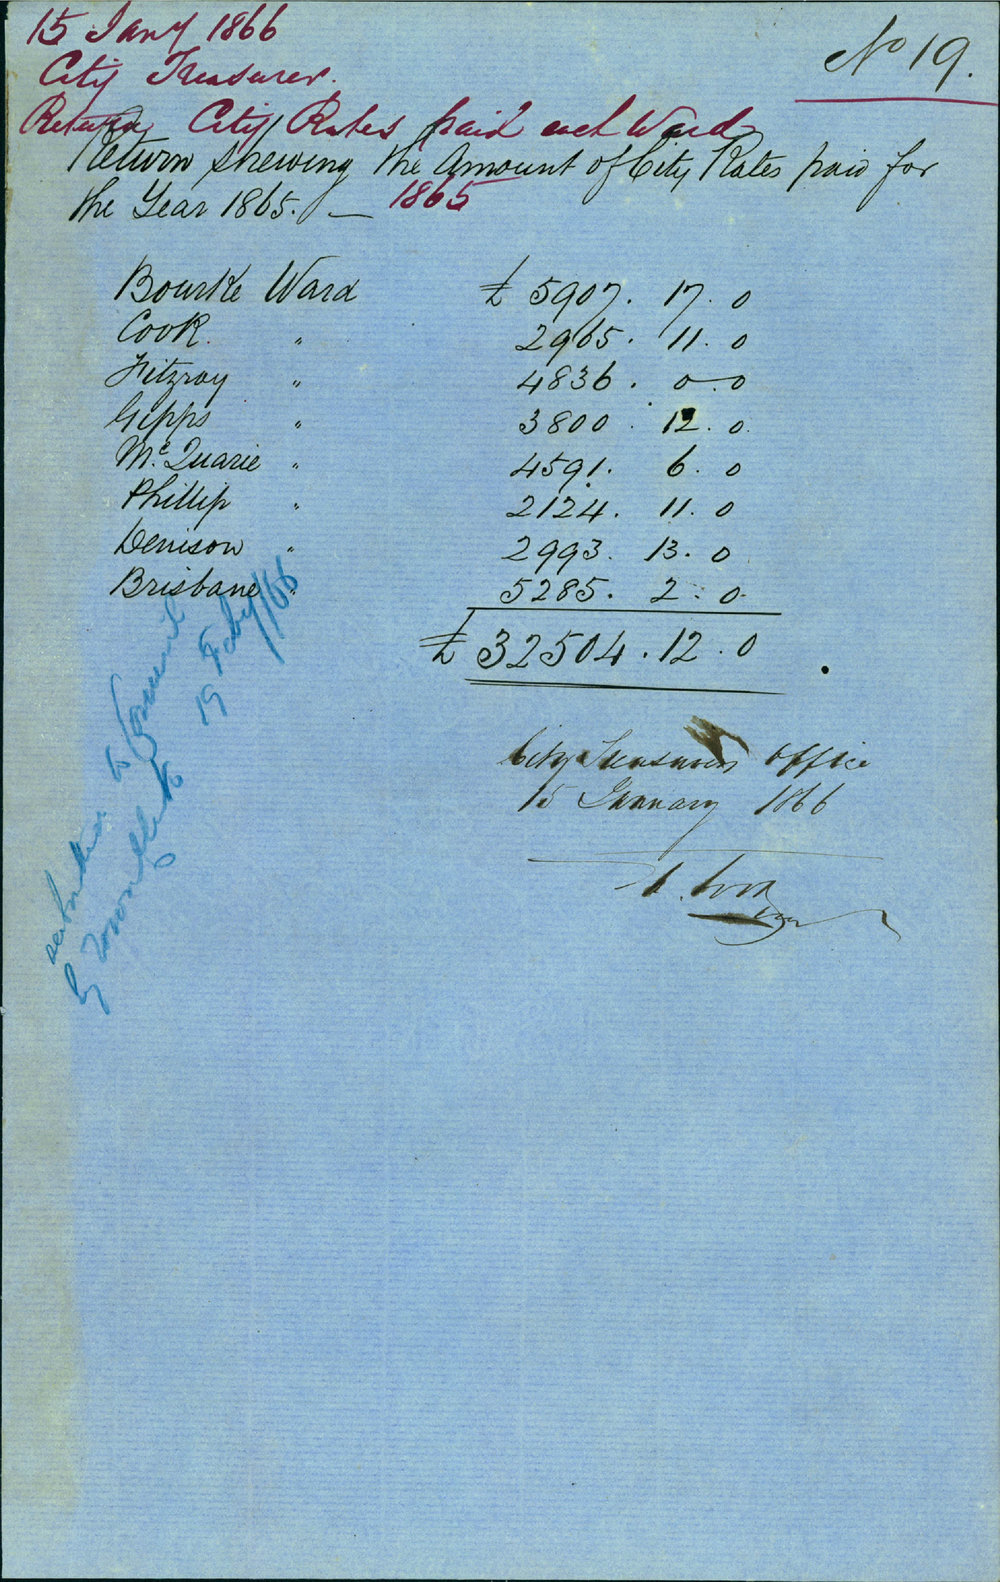 15 Jany 1866
No 19.
City Treasurer.
Return City Rates paid each Ward
1865
Return shewing the Amount of City Rates paid for
the Year 1865. —
Bourke Ward £ 5907. 17. 0
Cook. " 2965. 11. 0
Fitzroy " 4836. 0. 0
Gipps " 3800. 12. 0
McQuarie " 4591. 6. 0
Phillip " 2124. 11. 0
Denison " 2993. 13. 0
Brisbane " 5285. 2. 0
£ 32504. 12. 0
City Treasurers Office
15 January 1866
to Council
by
19 Feby/66